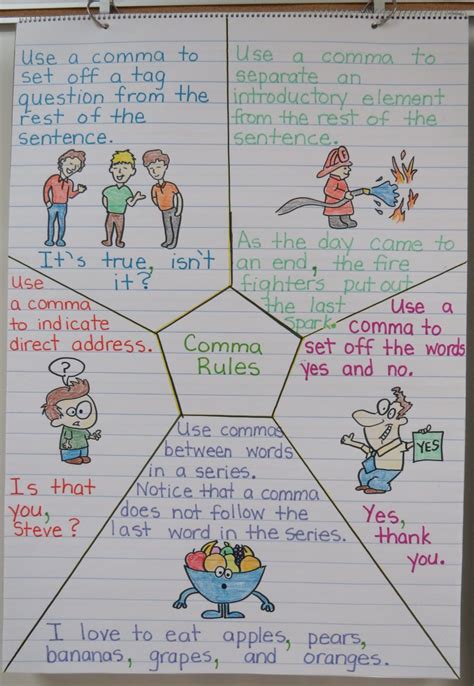 Use a comma to
set off a tag
question from the
rest of the
sentence.
It's true, isn't
it?
Use a comma to
separate an
introductory element
from the rest of the
sentence.
As the day came to
an end, the fire
fighters put out
the last
spark.
Use
a comma
to indicate
direct address.
?
Is that
you,
Steve?
Comma
Rules
Use a
comma to
set off the words
yes and no.
YES
Yes,
thank
you.
Use commas
between words
in a series.
Notice that a comma
does not follow the
last word in the series.
I love to eat apples, pears,
bananas, grapes, and oranges.